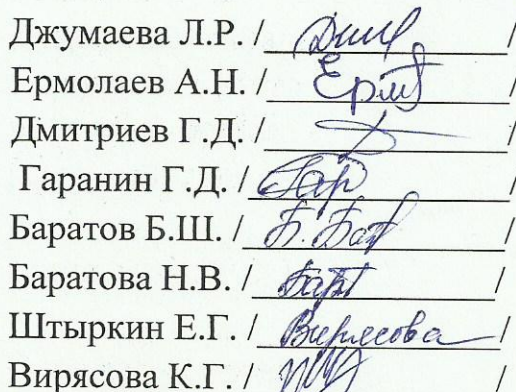 Джумаева Л.Р. / /
Ермолаев А.Н. / Ерм /
Дмитриев Г.Д. / /
Гаранин Г.Д. / Гар /
Баратов Б.Ш. / Б. Бат /
Баратова Н.В. / /
Штыркин Е.Г. / Вирясова /
Вирясова К.Г. / /